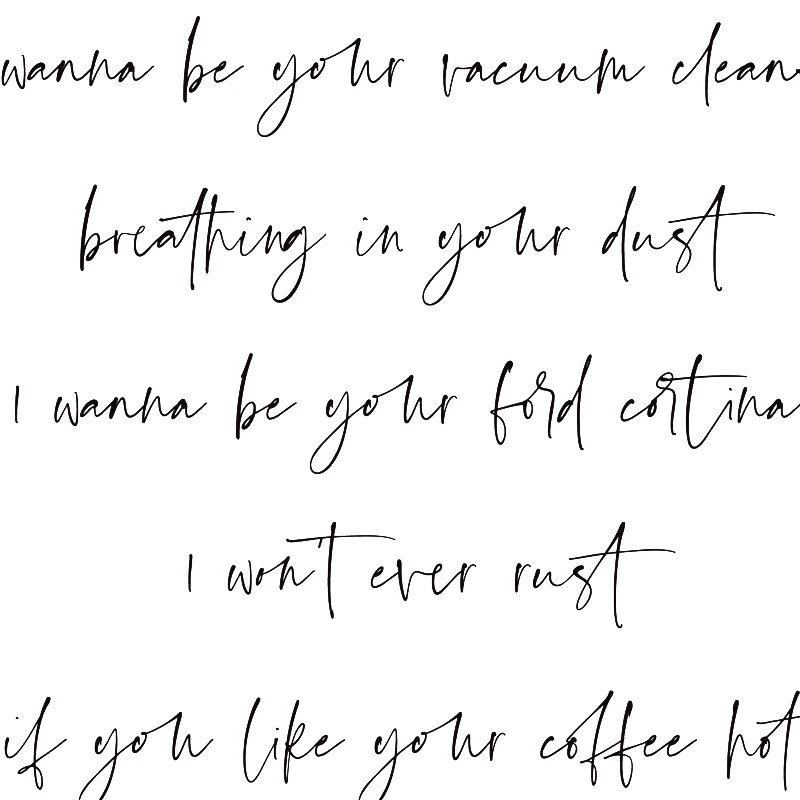 wanna be your vacuum clean
breathing in your dust
I wanna be your ford cortina
I won't ever rust
if you like your coffee hot